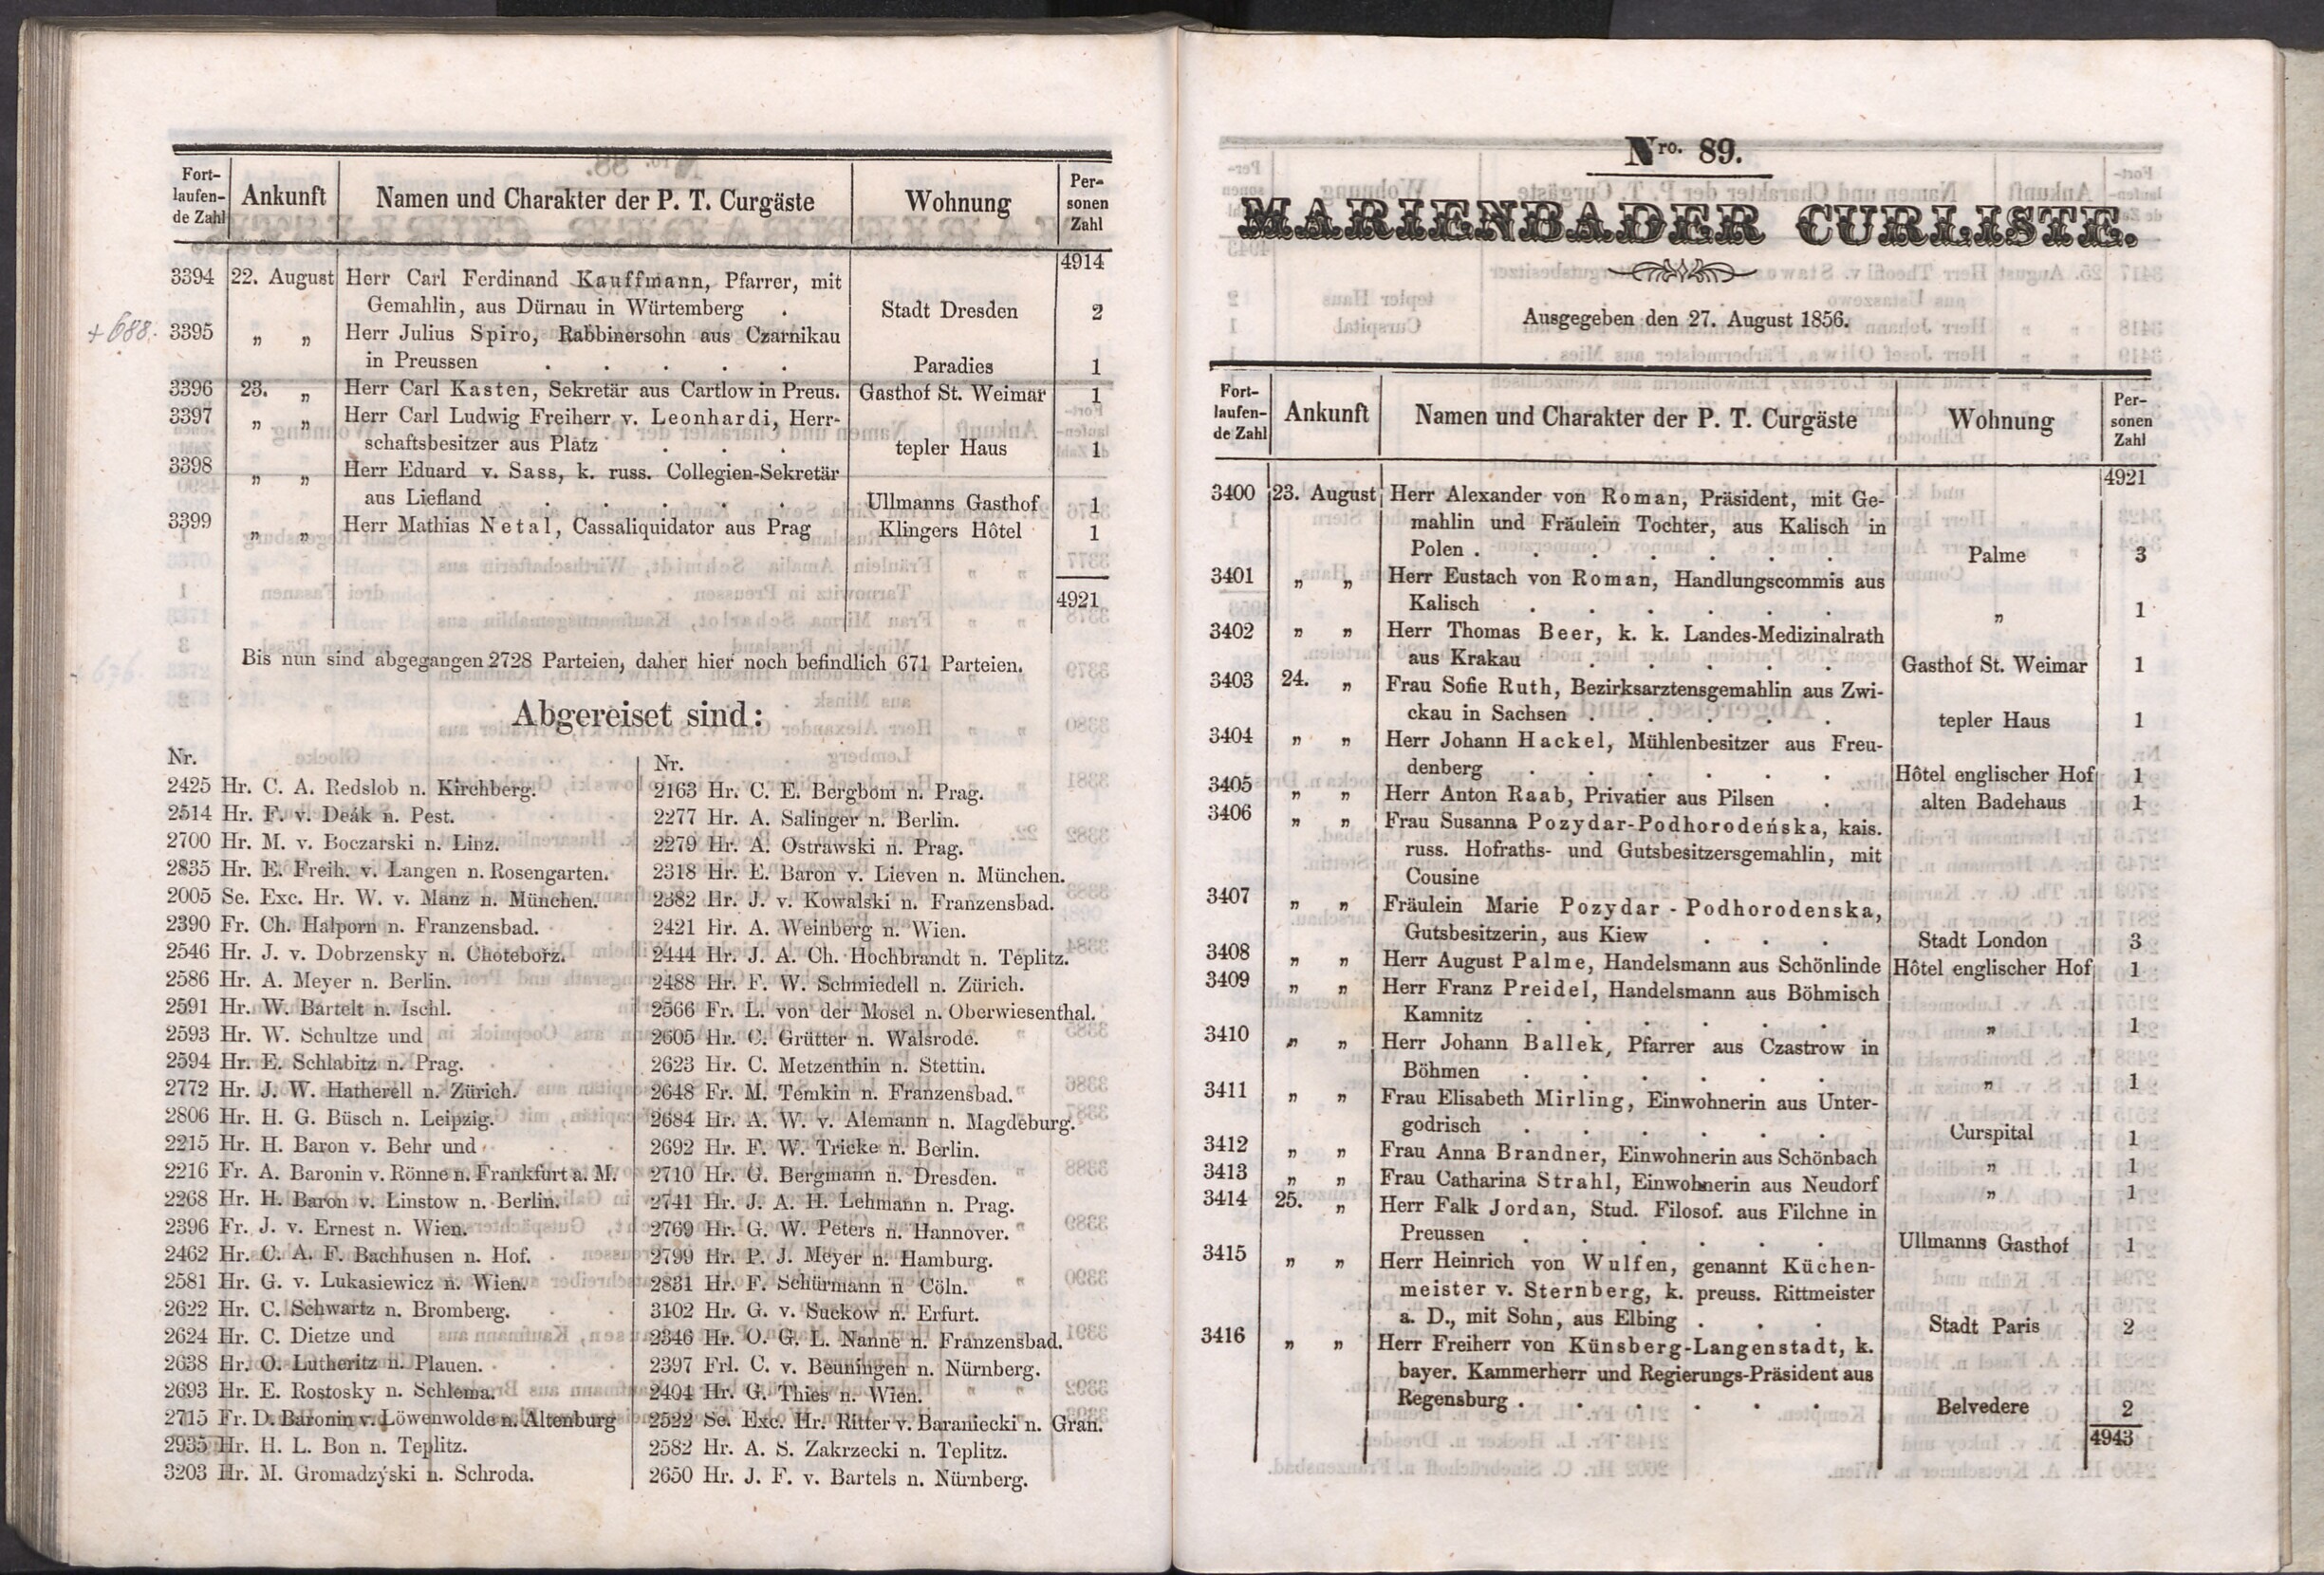 Fort-
laufen-
de Zahl
Ankunft
Namen und Charakter der P. T. Curgäste
Wohnung
Per-
sonen
Zahl
4914
3394 22. August Herr Carl Ferdinand Kauffmann, Pfarrer, mit
Gemahlin, aus Dürnau in Würtemberg . Stadt Dresden 2
+ 688. 3395 „ „ Herr Julius Spiro, Rabbinersohn aus Czarnikau
in Preussen . . . . . Paradies 1
3396 23. „ Herr Carl Kasten, Sekretär aus Cartlow in Preus. Gasthof St. Weimar 1
3397 „ „ Herr Carl Ludwig Freiherr v. Leonhardi, Herr-
schaftsbesitzer aus Platz . . . tepler Haus 1
3398 „ „ Herr Eduard v. Sass, k. russ. Collegien-Sekretär
aus Liefland . . . . . Ullmanns Gasthof 1
3399 „ „ Herr Mathias Netal, Cassaliquidator aus Prag Klingers Hôtel 1
4921
Bis nun sind abgegangen 2728 Parteien, daher hier noch befindlich 671 Parteien.
Abgereiset sind:
Nr.
2425 Hr. C. A. Redslob n. Kirchberg.
2514 Hr. F. v. Deák n. Pest.
2700 Hr. M. v. Boczarski n. Linz.
2835 Hr. E. Freih. v. Langen n. Rosengarten.
2005 Se. Exc. Hr. W. v. Manz n. München.
2390 Fr. Ch. Halporn n. Franzensbad.
2546 Hr. J. v. Dobrzensky n. Chotebořz.
2586 Hr. A. Meyer n. Berlin.
2591 Hr. W. Bartelt n. Ischl.
2593 Hr. W. Schultze und
2594 Hr. E. Schlabitz n. Prag.
2772 Hr. J. W. Hatherell n. Zürich.
2806 Hr. H. G. Büsch n. Leipzig.
2215 Hr. H. Baron v. Behr und
2216 Fr. A. Baronin v. Rönne n. Frankfurt a. M.
2268 Hr. H. Baron v. Linstow n. Berlin.
2396 Fr. J. v. Ernest n. Wien.
2462 Hr. C. A. F. Bachhusen n. Hof.
2581 Hr. G. v. Lukasiewicz n. Wien.
2622 Hr. C. Schwartz n. Bromberg.
2624 Hr. C. Dietze und
2638 Hr. O. Lutheritz n. Plauen.
2693 Hr. E. Rostosky n. Schlema.
2715 Fr. D. Baronin v. Löwenwolde n. Altenburg
2935 Hr. H. L. Bon n. Teplitz.
3203 Hr. M. Gromadzýski n. Schroda.
Nr.
2163 Hr. C. E. Bergbom n. Prag.
2277 Hr. A. Salinger n. Berlin.
2279 Hr. A. Ostrawski n. Prag.
2318 Hr. E. Baron v. Lieven n. München.
2382 Hr. J. v. Kowalski n. Franzensbad.
2421 Hr. A. Weinberg n. Wien.
2444 Hr. J. A. Ch. Hochbrandt n. Teplitz.
2488 Hr. F. W. Schmiedell n. Zürich.
2566 Fr. L. von der Mosel n. Oberwiesenthal.
2605 Hr. C. Grütter n. Walsrode.
2623 Hr. C. Metzenthin n. Stettin.
2648 Fr. M. Temkin n. Franzensbad.
2684 Hr. A. W. v. Alemann n. Magdeburg.
2692 Hr. F. W. Tricke n. Berlin.
2710 Hr. G. Bergmann n. Dresden.
2741 Hr. J. A. H. Lehmann n. Prag.
2769 Hr. G. W. Peters n. Hannover.
2799 Hr. P. J. Meyer n. Hamburg.
2831 Hr. F. Schürmann n Cöln.
3102 Hr. G. v. Suckow n. Erfurt.
2346 Hr. O. G. L. Nanne n. Franzensbad.
2397 Frl. C. v. Beuningen n. Nürnberg.
2404 Hr. G. Thies n. Wien.
2522 Se. Exc. Hr. Ritter v. Baraniecki n. Gran.
2582 Hr. A. S. Zakrzecki n. Teplitz.
2650 Hr. J. F. v. Bartels n. Nürnberg.
Nro. 89.
MARIENBADER CURLISTE.
Ausgegeben den 27. August 1856.
Fort-
laufen-
de Zahl
Ankunft
Namen und Charakter der P. T. Curgäste
Wohnung
Per-
sonen
Zahl
4921
3400 23. August Herr Alexander von Roman, Präsident, mit Ge-
mahlin und Fräulein Tochter, aus Kalisch in
Polen . . . . . . Palme 3
3401 „ „ Herr Eustach von Roman, Handlungscommis aus
Kalisch . . . . . . „ 1
3402 „ „ Herr Thomas Beer, k. k. Landes-Medizinalrath
aus Krakau . . . . . Gasthof St. Weimar 1
3403 24. „ Frau Sofie Ruth, Bezirksarztensgemahlin aus Zwi-
ckau in Sachsen . . . . . tepler Haus 1
3404 „ „ Herr Johann Hackel, Mühlenbesitzer aus Freu-
denberg . . . . . . Hôtel englischer Hof 1
3405 „ „ Herr Anton Raab, Privatier aus Pilsen . alten Badehaus 1
3406 „ „ Frau Susanna Pozydar-Podhorodeńska, kais.
russ. Hofraths- und Gutsbesitzersgemahlin, mit
Cousine
3407 „ „ Fräulein Marie Pozydar-Podhorodenska,
Gutsbesitzerin, aus Kiew . . . Stadt London 3
3408 „ „ Herr August Palme, Handelsmann aus Schönlinde Hôtel englischer Hof 1
3409 „ „ Herr Franz Preidel, Handelsmann aus Böhmisch
Kamnitz . . . . . . „ 1
3410 „ „ Herr Johann Ballek, Pfarrer aus Czastrow in
Böhmen . . . . . . „ 1
3411 „ „ Frau Elisabeth Mirling, Einwohnerin aus Unter-
godrisch . . . . . . Curspital 1
3412 „ „ Frau Anna Brandner, Einwohnerin aus Schönbach „ 1
3413 „ „ Frau Catharina Strahl, Einwohnerin aus Neudorf „ 1
3414 25. „ Herr Falk Jordan, Stud. Filosof. aus Filchne in
Preussen . . . . . . Ullmanns Gasthof 1
3415 „ „ Herr Heinrich von Wulfen, genannt Küchen-
meister v. Sternberg, k. preuss. Rittmeister
a. D., mit Sohn, aus Elbing . . . Stadt Paris 2
3416 „ „ Herr Freiherr von Künsberg-Langenstadt, k.
bayer. Kammerherr und Regierungs-Präsident aus
Regensburg . . . . . . Belvedere 2
4943